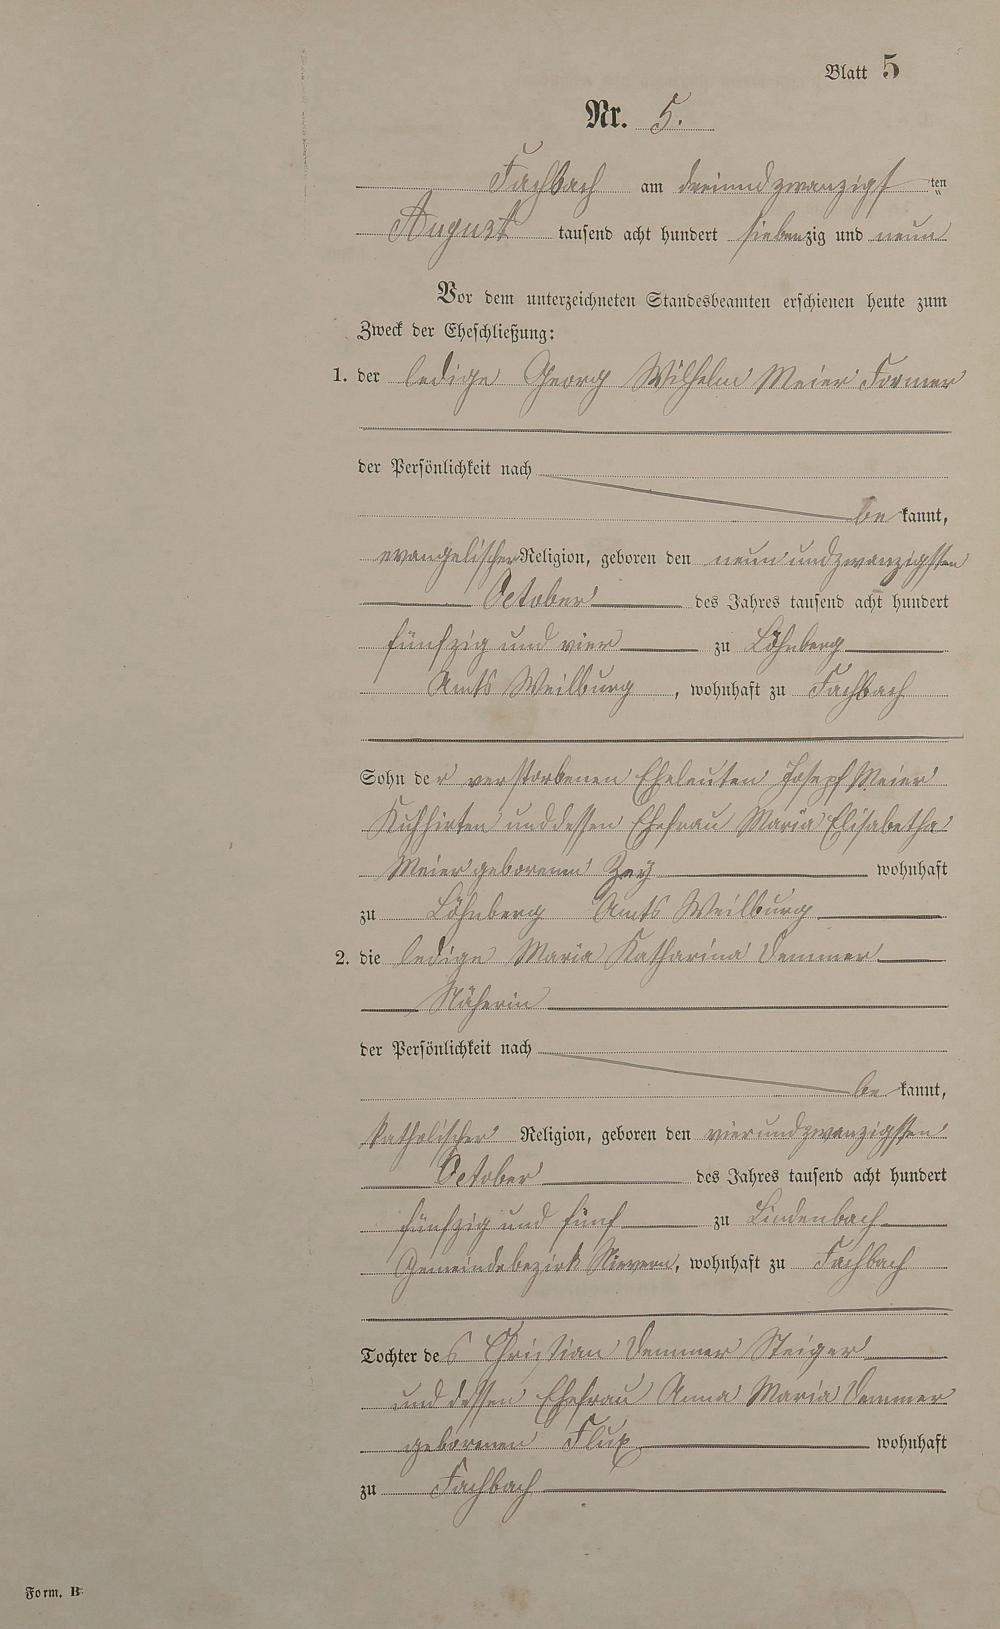 Blatt 5
Nr. 5.
Fachbach am dreiundzwanzigsten
August tausend acht hundert siebenzig und neun
Vor dem unterzeichneten Standesbeamten erschienen heute zum
Zweck der Eheschließung:
1. der ledige Georg Wilhelm Meier Former
der Persönlichkeit nach
bekannt,
evangelischer Religion, geboren den neun und zwanzigsten
October des Jahres tausend acht hundert
fünfzig und vier zu Löhnberg
Amts Weilburg, wohnhaft zu Fachbach
Sohn der verstorbenen Eheleuten Joseph Meier
Kuhhirten und dessen Ehefrau Maria Elisabetha
Meier geborenen Zey wohnhaft
zu Löhnberg Amts Weilburg
2. die ledige Maria Katharina Demmer
Näherin
der Persönlichkeit nach
bekannt,
katholischer Religion, geboren den vierundzwanzigsten
October des Jahres tausend acht hundert
fünfzig und fünf zu Lindenbach
Gemeindebezirk Nievern, wohnhaft zu Fachbach
Tochter des Christian Demmer Steiger
und dessen Ehefrau Anna Maria Demmer
geborenen Flux wohnhaft
zu Fachbach
Form. B